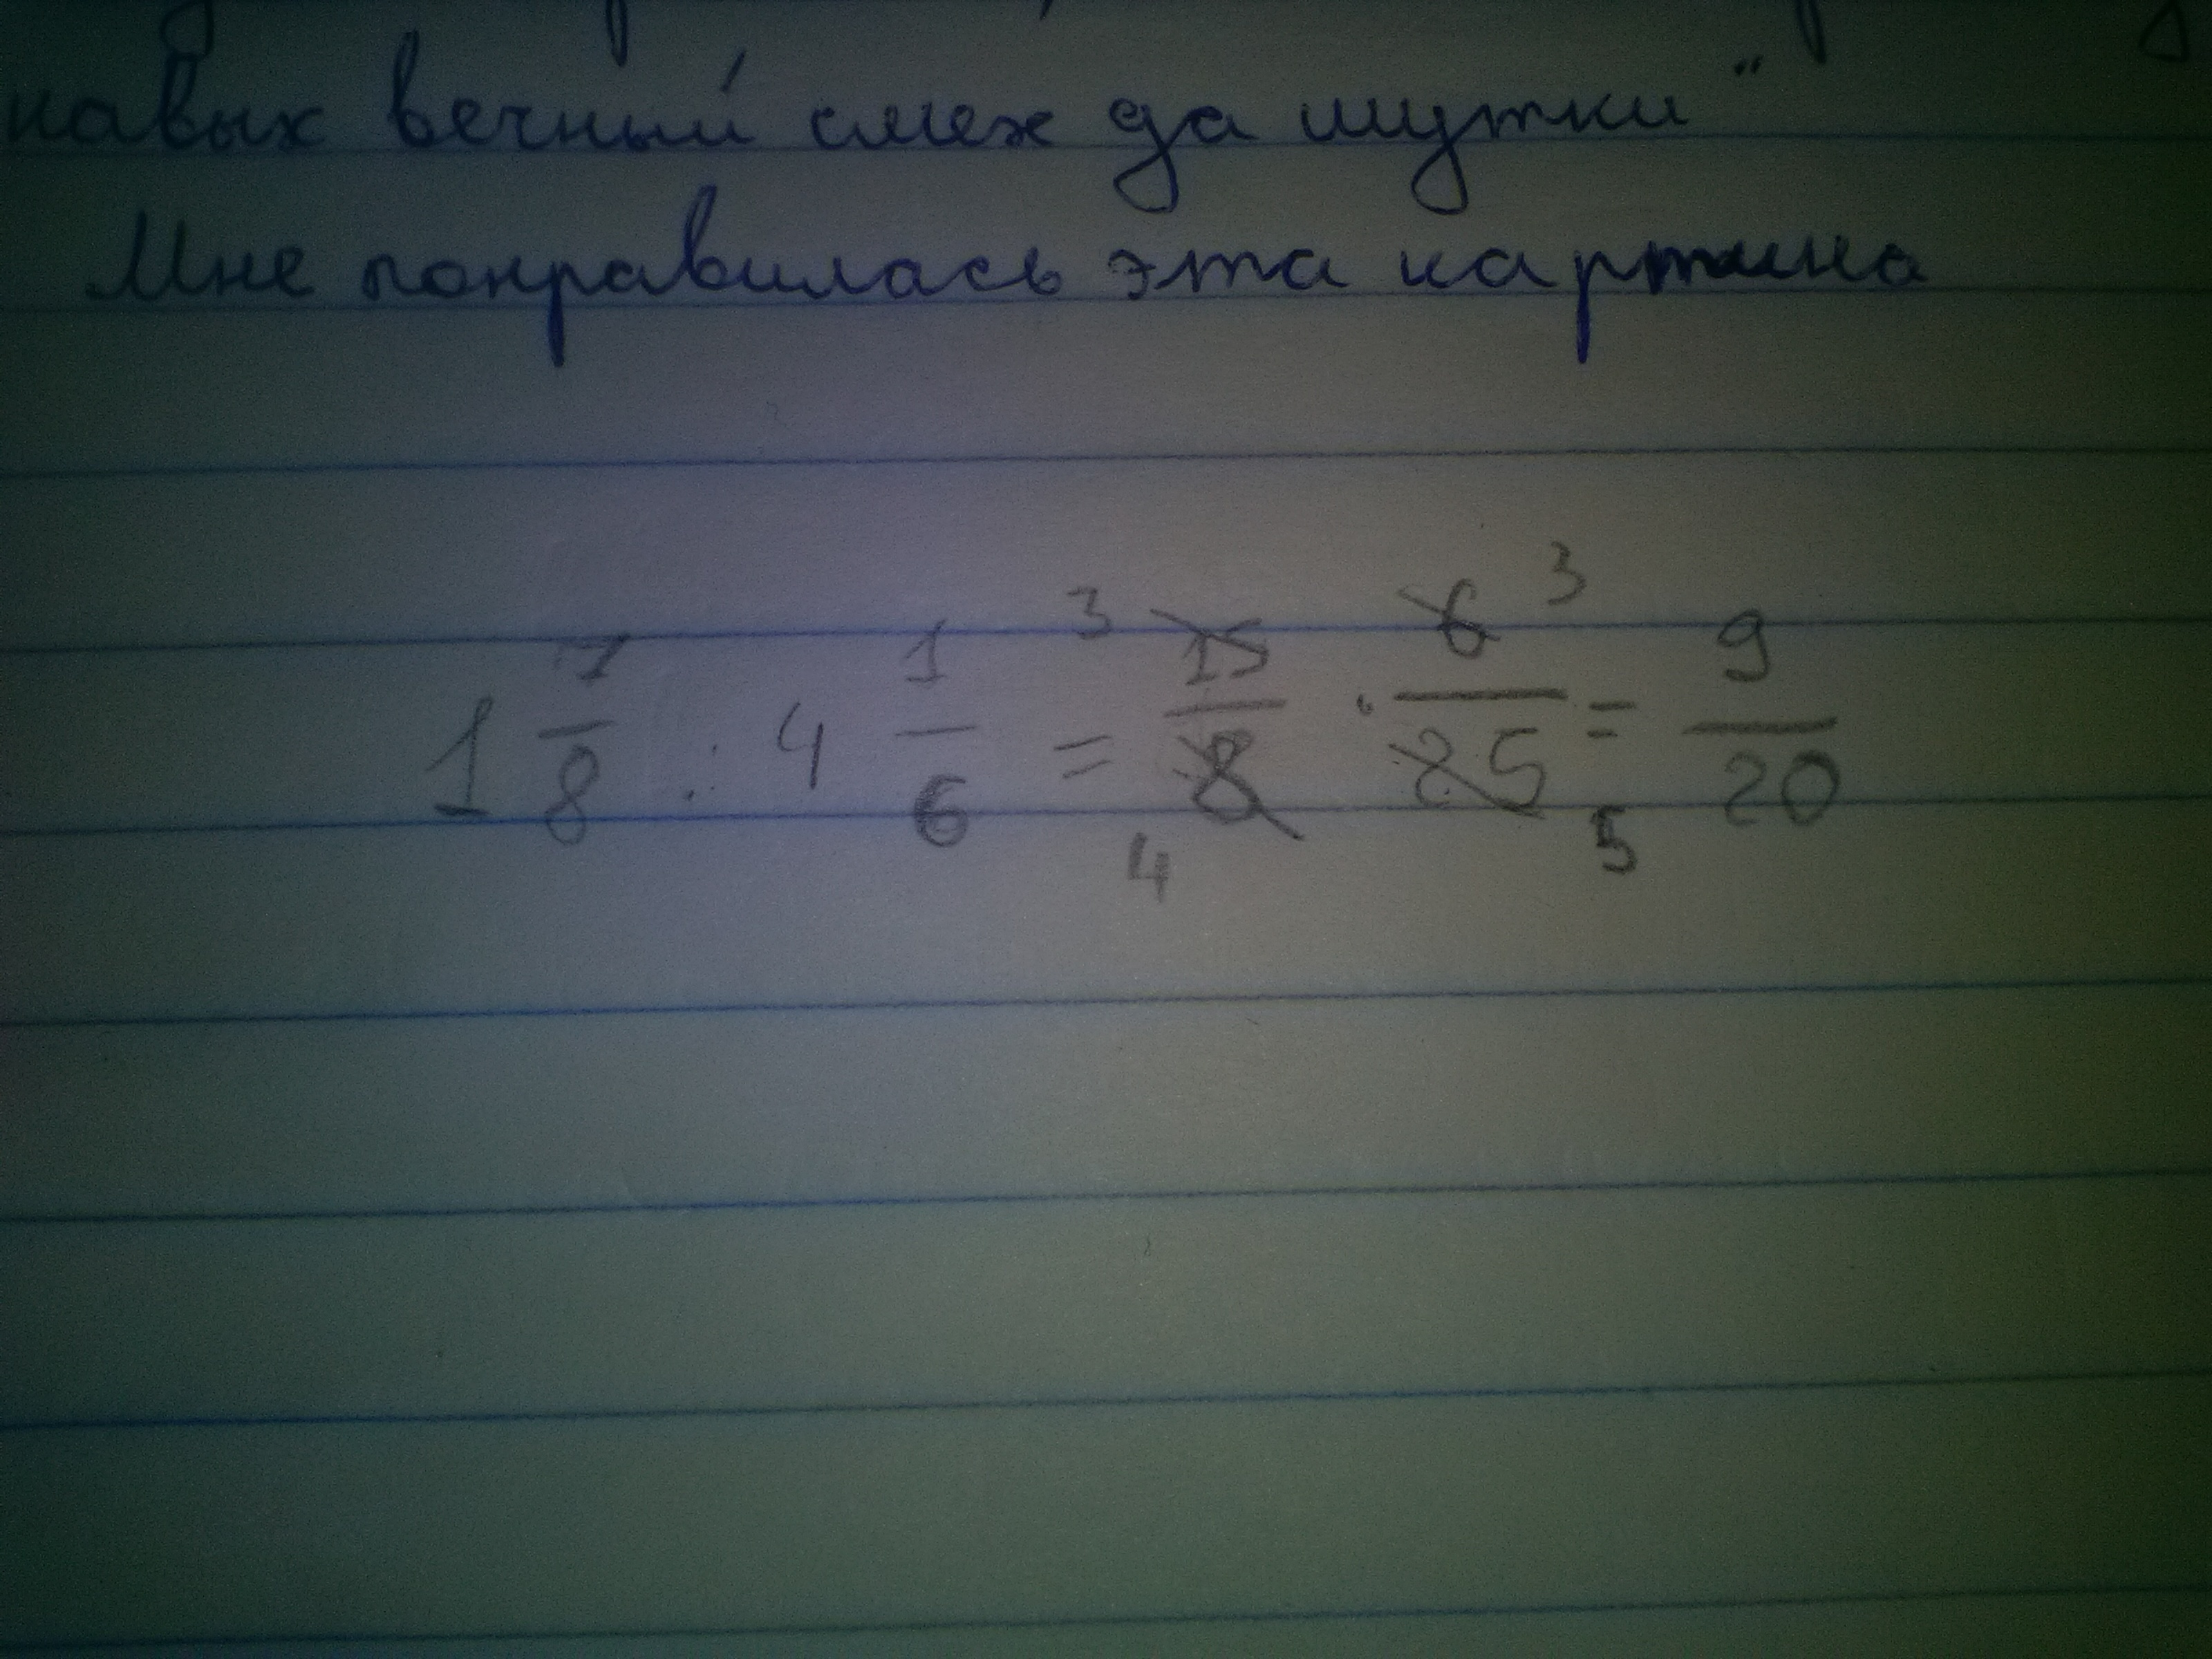 вечный смех да шутки"
Мне понравилась эта картина
1 7/8 : 4 1/6 = 3 15/8 4 · 6/25 3 5 = 9/20